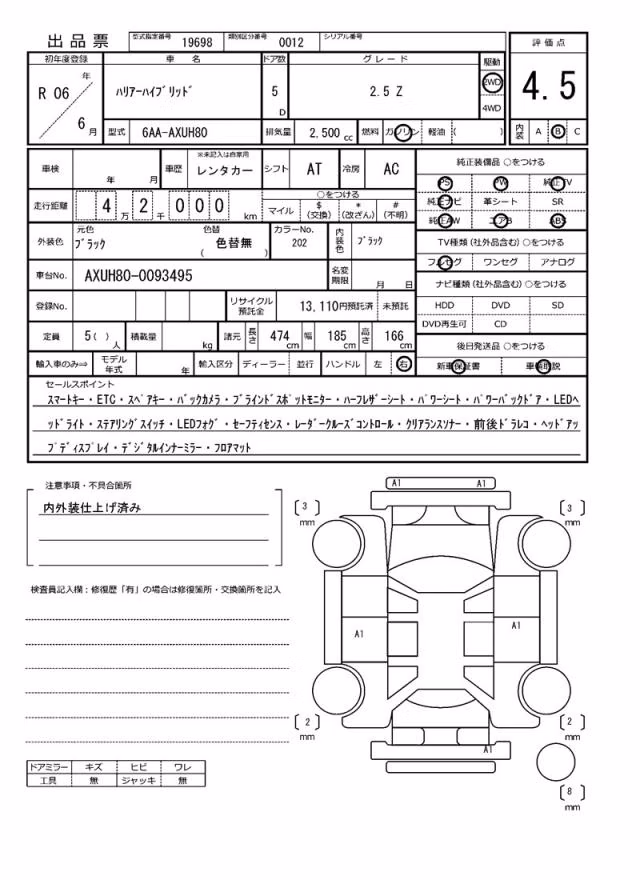 出品票 型式指定番号 19698 類別区分番号 0012 シリアル番号
評価点
初年度登録 車名 ドア数 グレード 駆動
R 06 年 6 月 ハリアーハイブリッド 5 D 2.5 Z 2WD 4WD
4.5
型式 6AA-AXUH80 排気量 2,500 cc 燃料 ガソリン 軽油 ( )
内装 A B C
車検 年 月 車歴 ※未記入は自家用 レンタカー シフト AT 冷房 AC
純正装備品 ○をつける
PS PW 純正TV
純正ナビ 革シート SR
純正AW エアB ABS
走行距離 4 万 2 千 0 0 0 km
○をつける
マイル $ (交換) * (改ざん) # (不明)
外装色 元色 ブラック 色替 ( 色替無 ) カラーNo. 202 内装色 ブラック
TV種類(社外品含む)○をつける
フルセグ ワンセグ アナログ
車台No. AXUH80-0093495 名変期限 月 日
ナビ種類(社外品含む)○をつける
HDD DVD SD
DVD再生可 CD
登録No. リサイクル預託金 13,110円預託済 未預託
定員 5( )人 積載量 kg 諸元 長さ 474 cm 幅 185 cm 高さ 166 cm
後日発送品 ○をつける
新車保証書 車輌取説
輸入車のみ⇒ モデル年式 年 輸入区分 ディーラー 並行 ハンドル 左 右
セールスポイント
スマートキー・ETC・スペアキー・バックカメラ・ブラインドスポットモニター・ハーフレザーシート・パワーシート・パワーバックドア・LEDヘ
ッドライト・ステアリングスイッチ・LEDフォグ・セーフティセンス・レーダークルーズコントロール・クリアランスソナー・前後ドラレコ・ヘッドアッ
プディスプレイ・デジタルインナーミラー・フロアマット
注意事項・不具合箇所
内外装仕上げ済み
検査員記入欄：修復歴「有」の場合は修復箇所・交換箇所を記入
ドアミラー キズ ヒビ ワレ
工具 無 ジャッキ 無
A1 A1
3 mm
3 mm
A1
A1
2 mm
2 mm
A1
8 mm